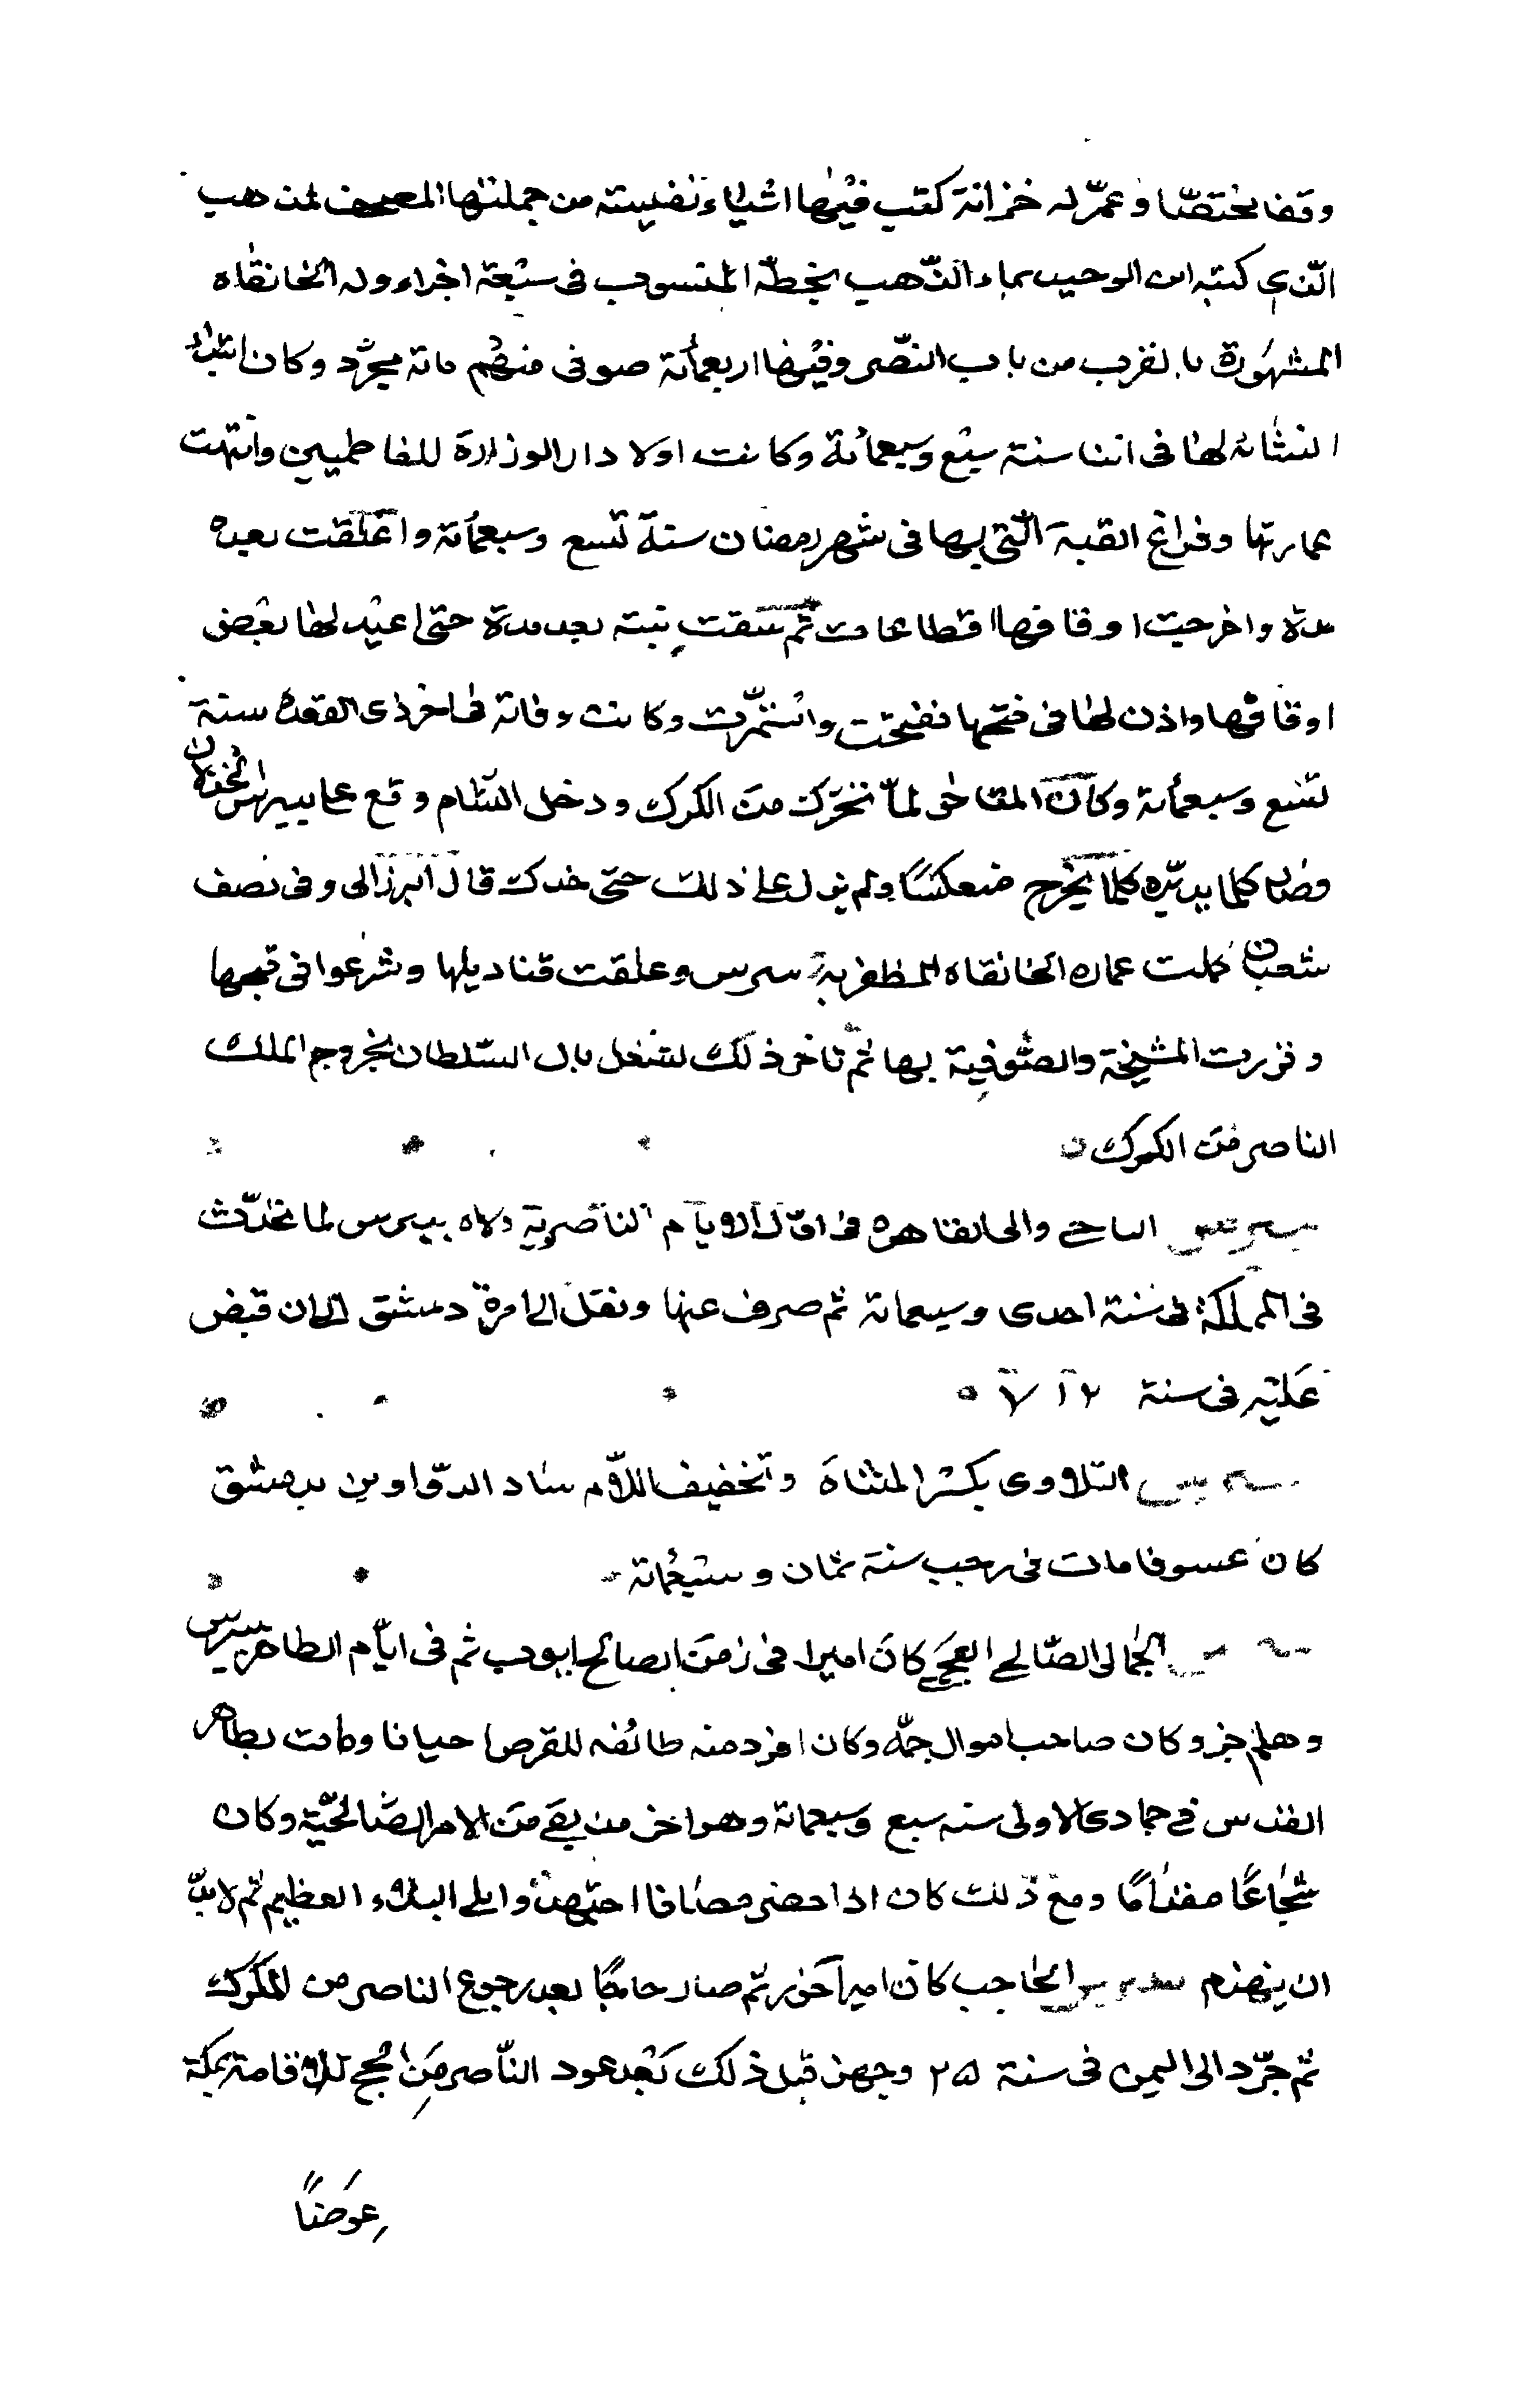 وقفا مختصّا وعمّر له خزانة كتب فيها اشياء نفيسة من جملتها المصحف لمذهب
الّذي كتبه ابن الوحيد بماء الذّهب بخطّه المنسوب فى سبعة اجزاء وله الخانقاه
المشهورة بالقرب من باب النصّر وفيها اربعمائة صوفى منهم مائة مجرّد وكان ابتداء
انشائه لها فى اثنا سنة سبع وسبعمائة وكانت اولا دار الوزارة للفاطميين وانتهت
عمارتها وفراغ القبة الّتى بها فى شهر رمضان سنة تسع وسبعمائة واغلقت بعده
مدة واخرجت اوقافها اقطاعات ثم بعد مدة حتى اعيد لها بعض
اوقافها واذن لها فى فتحها ففتحت واستمّرت وكانت وفاته فى اخر ذى القعدة سنة
تسع وسبعمائة وكان لمّا تحرّك من الكرك ودخل الشام وقع على بيبرس الخذلان
وصار كلما يدبّره كلما يخرج منعكسًا ولم يزل على ذلك حتى خدك قال البرزالى وفى نصف
شعبان كملت عماره الخانقاه المظفرية بيبرس وعلقت قناديلها وشرعوا فى
وقررت المشيخة والصّوفية بها ثم تاخر ذلك لشغل بال السّلطان بخروج الملك
الناصر من الكرك
بيبرس والى القاهره فى اوّل الايّام النّاصرية ولاه بيبرس لما تحدّث
فى المملكة فى سنة احدى وسبعمائة ثم صرف عنها ونقل الى امرة دمشق الى ان قبض
عليه فى سنة ٧١٢
بيبرس التلاوى بكسر المثناة وتخفيف اللّام شاد الدوّاوين بدمشق
كان عسوفا مات فى رجب سنة ثمان وسبعمائة
بيبرس الجمالى الصّالحى العجمى كان اميرا فى زمن الصالح ايوب ثم فى ايّام الظاهر بيبرس
وهلم جرا وكان صاحب اموال جمّه وكان افرد منه طائفه للقرض احيانا ومات بظاهر
القدس فى جمادى الاولى سنه سبع وسبعمائة وهو اخر من بقى من الامرا الصّالحيّة وكان
شجاعًا مقدامًا ومع ذلك كان اذا حضر مصافا اجتهد وابلى البلاء العظيم ثم لا بدّ
ان ينهزم بيبرس الحاجب كان امير آخور ثم صار حاجبًا بعد رجوع الناصر من الكرك
ثم جرّد الى اليمن فى سنة ٢٥ وجهز قبل ذلك بعد عود النّاصر من الحج للاقامة بمكة
عوضًا